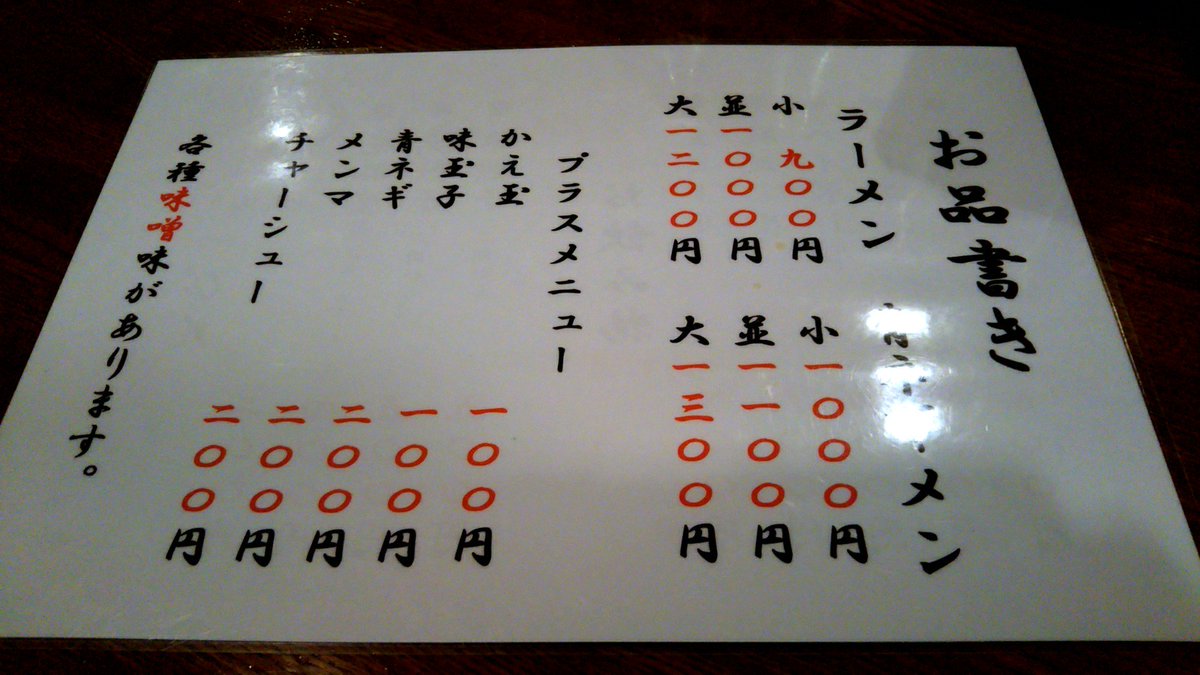 お品書き
ラーメン
小 九〇〇円
並 一〇〇〇円
大 一二〇〇円
メン
小 一〇〇〇円
並 一一〇〇円
大 一三〇〇円
プラスメニュー
かえ玉 一〇〇円
味玉子 一〇〇円
青ネギ 二〇〇円
メンマ 二〇〇円
チャーシュー 二〇〇円
各種味噌味があります。